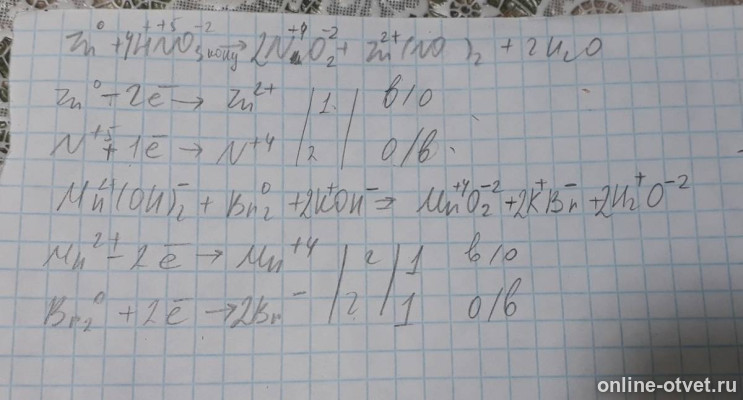 Zn⁰ + 4H⁺N⁺⁵O₃⁻² конц → 2N⁺⁴O₂⁻² + Zn²⁺(NO )₂ + 2H₂O
Zn⁰ - 2ē → Zn²⁺ | 1 | в/о
N⁺⁵ + 1ē → N⁺⁴ | 2 | о/в
(OH)₂⁻ + Br₂⁰ + 2K⁺OH⁻ = Mn⁺⁴O₂⁻² + 2K⁺Br⁻ + 2H₂⁺O⁻²
Mn²⁺ - 2ē → Mn⁺⁴ | 2 | 1 в/о
Br₂⁰ + 2ē → 2Br⁻ | 2 | 1 о/в
online-otvet.ru